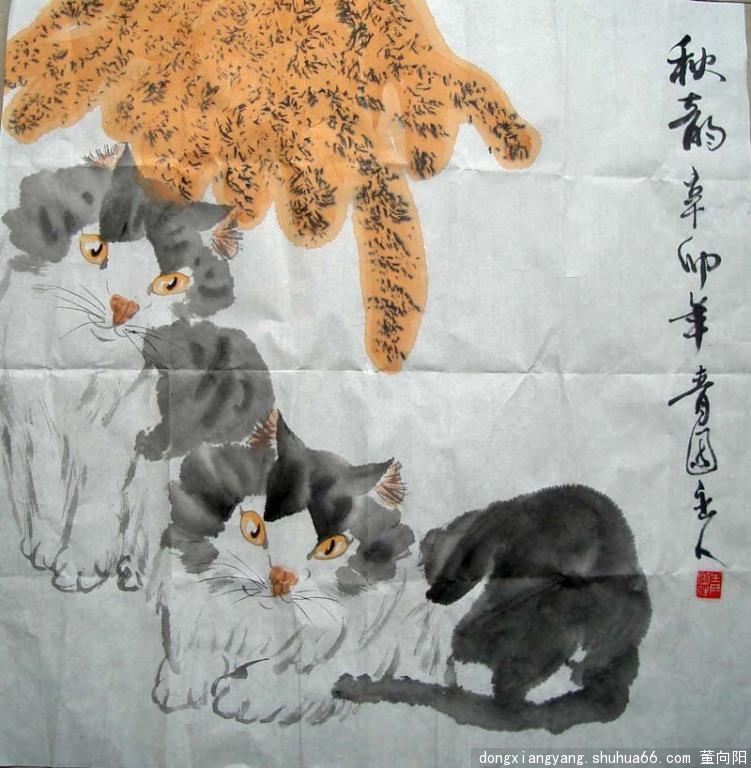 秋韵 辛卯年青园主人
dongxiangyang.shuhua66.com 董向阳